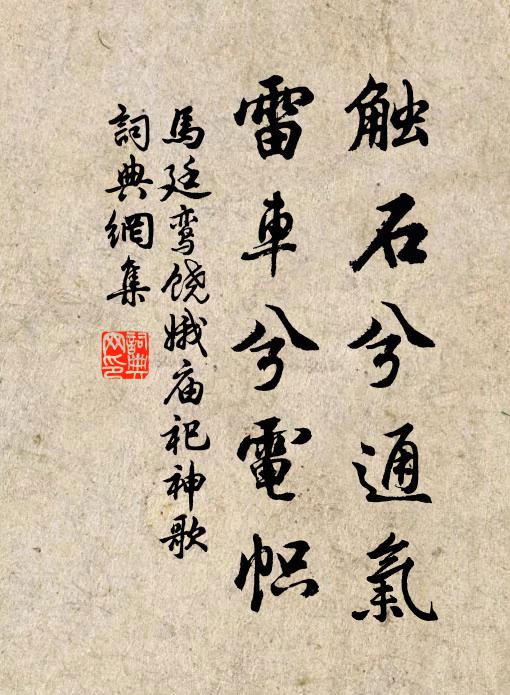 触石兮通氣
雷車兮電帜
馬廷鸾饶娥庙祀神歌
詞典網集
詞典
网印